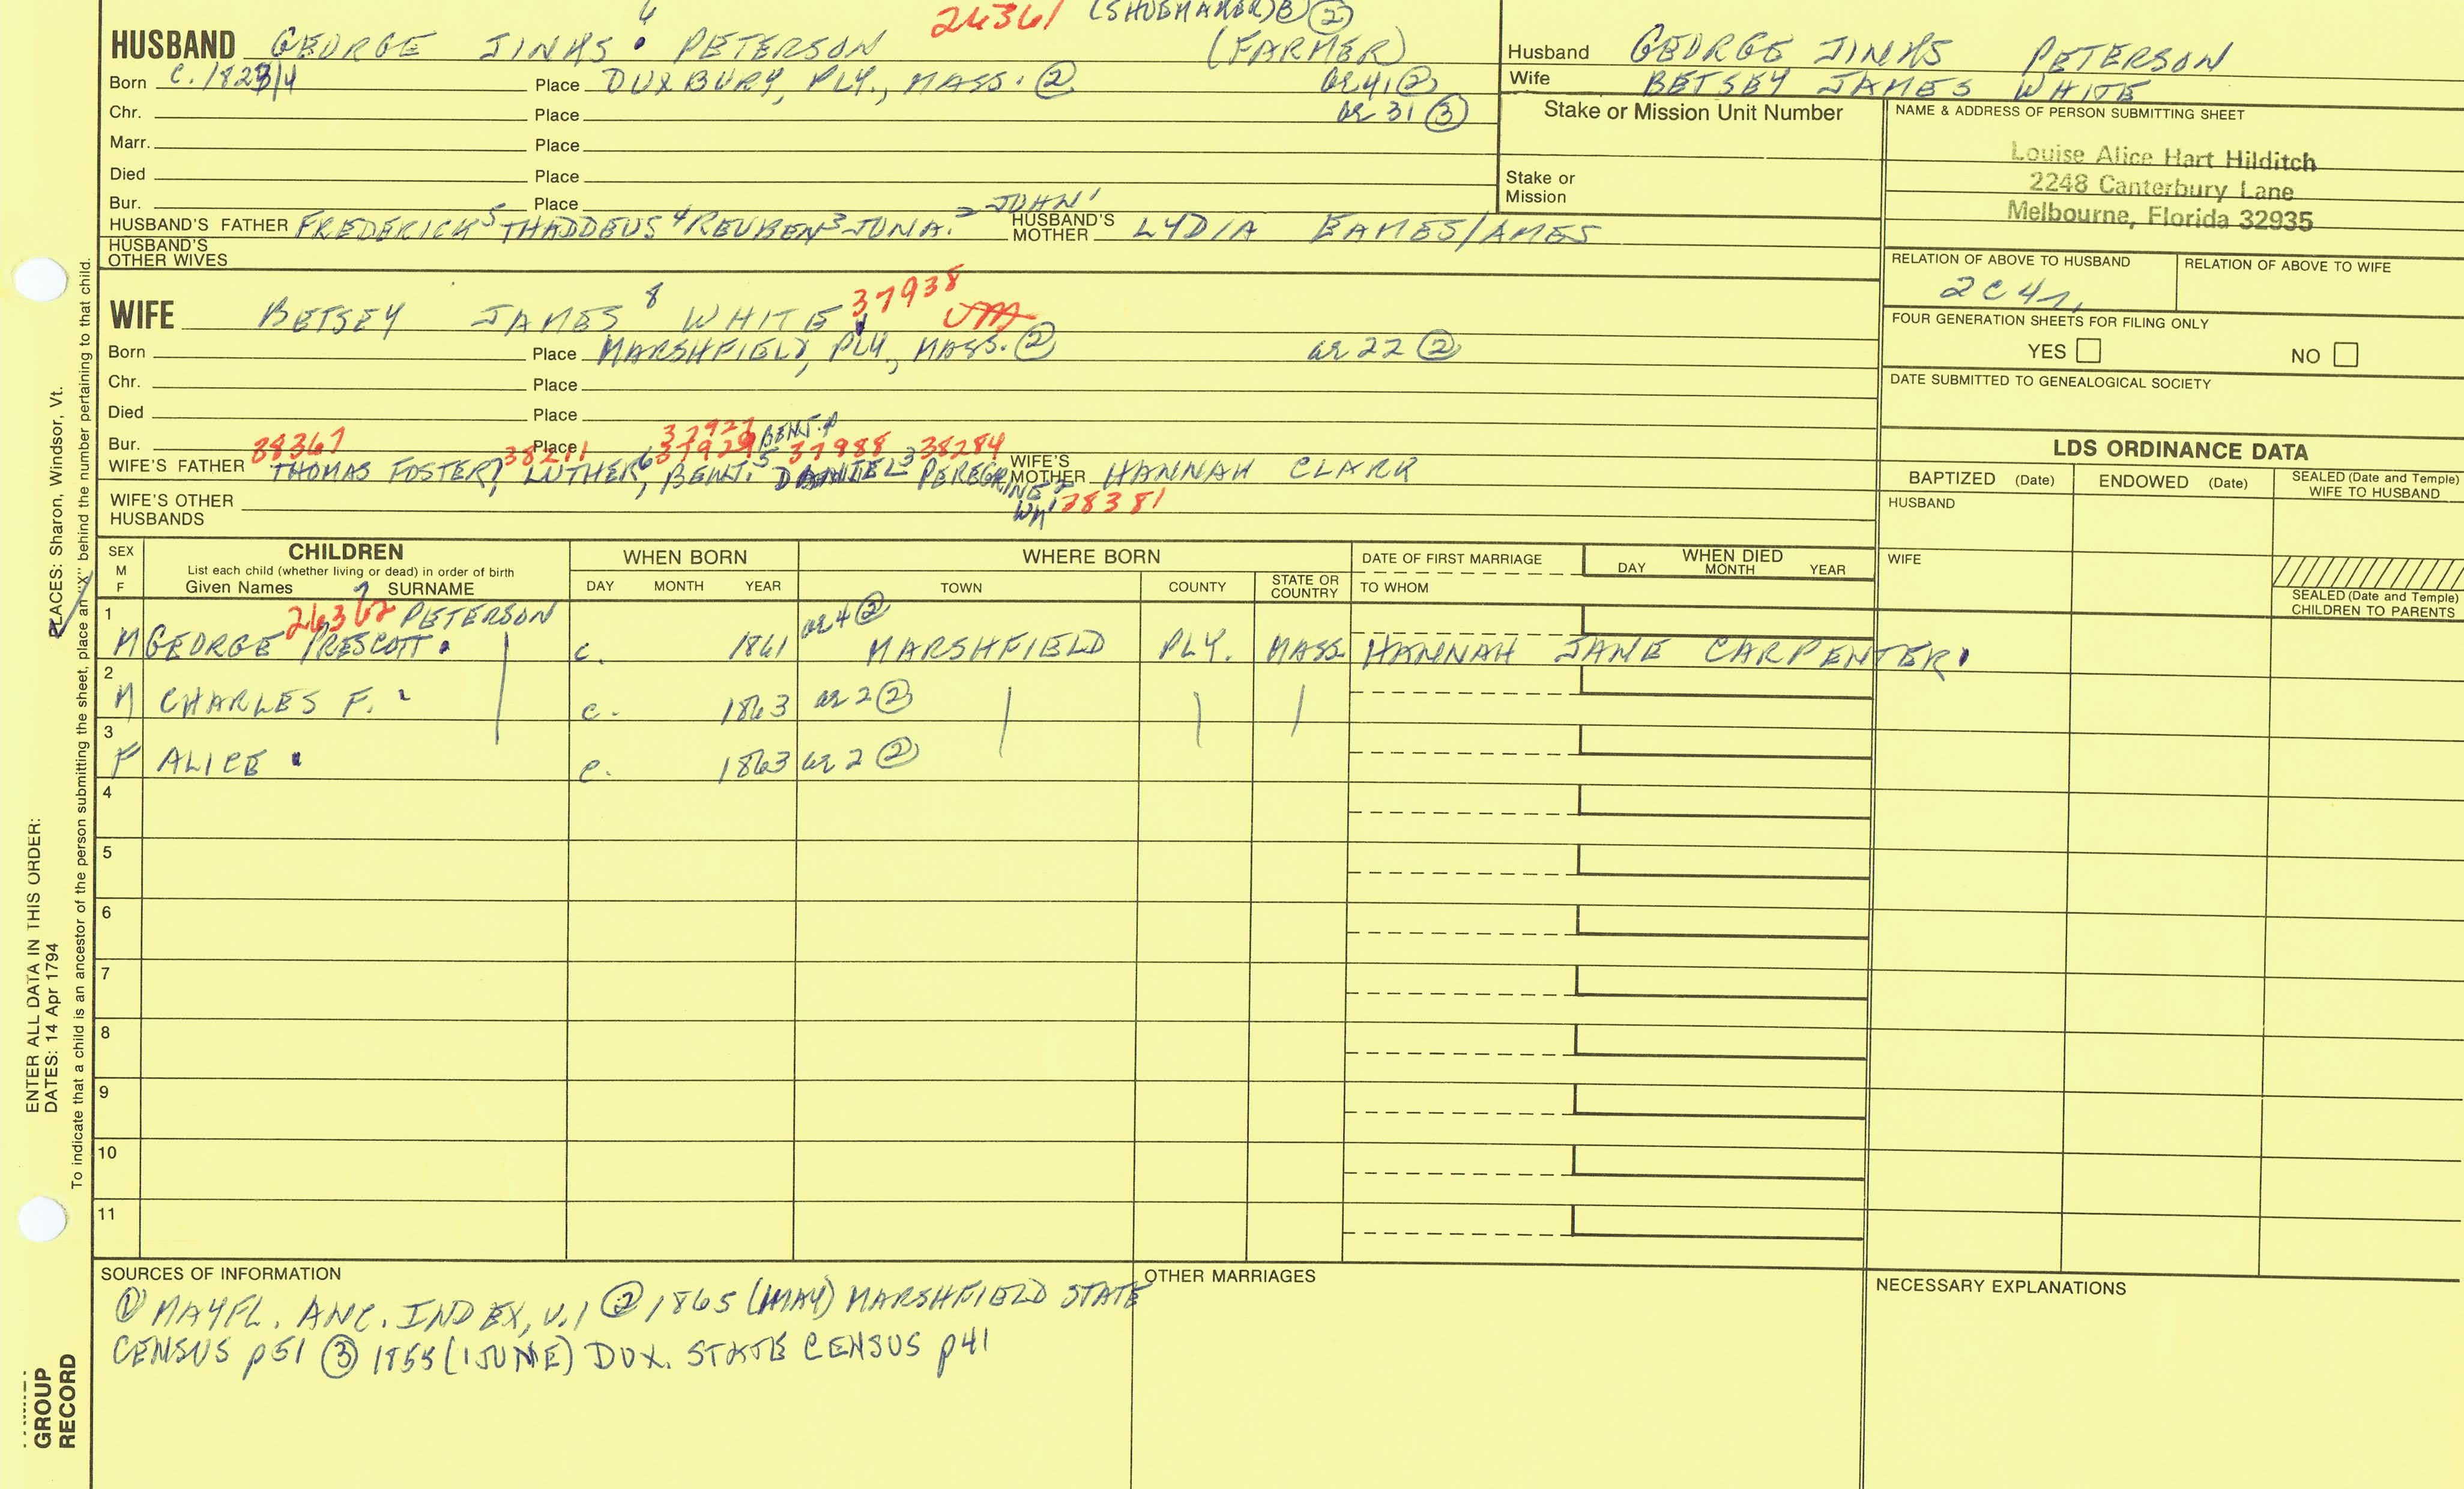 24361 (SHOEMAKER) ②
HUSBAND GEORGE JINKS 6 PETERSON (FARMER)
Born c. 1823/4 Place DUXBURY, PLY., MASS. ② ae 41 ②
Chr. Place ae 31 ③
Marr. Place
Died Place
Bur. Place
HUSBAND'S FATHER FREDERICK 5 THADDEUS 4 REUBEN 3 JONA. 2 JOHN 1 HUSBAND'S MOTHER LYDIA EAMES/AMES
HUSBAND'S OTHER WIVES
WIFE BETSEY JAMES 8 WHITE 37938
Born Place MARSHFIELD, PLY., MASS. ② ae 22 ②
Chr. Place
Died Place
Bur. Place
38367 38211 37927 37929 BENJ. 37988 38284
WIFE'S FATHER THOMAS FOSTER 7, LUTHER 6, BENJ. 5 DANIEL 3 PEREGRINE 2 WIFE'S MOTHER HANNAH CLARK
Wm 1 38381
WIFE'S OTHER HUSBANDS
Husband GEORGE JINKS PETERSON
Wife BETSEY JAMES WHITE
Stake or Mission Unit Number
Stake or Mission
NAME & ADDRESS OF PERSON SUBMITTING SHEET
Louise Alice Hart Hilditch
2248 Canterbury Lane
Melbourne, Florida 32935
RELATION OF ABOVE TO HUSBAND RELATION OF ABOVE TO WIFE
2C4r.
FOUR GENERATION SHEETS FOR FILING ONLY
YES NO
DATE SUBMITTED TO GENEALOGICAL SOCIETY
LDS ORDINANCE DATA
BAPTIZED (Date) ENDOWED (Date) SEALED (Date and Temple) WIFE TO HUSBAND
HUSBAND
WIFE
SEALED (Date and Temple) CHILDREN TO PARENTS
SEX M F
CHILDREN
List each child (whether living or dead) in order of birth
Given Names SURNAME
WHEN BORN
DAY MONTH YEAR
WHERE BORN
TOWN COUNTY STATE OR COUNTRY
DATE OF FIRST MARRIAGE
TO WHOM
WHEN DIED
DAY MONTH YEAR
1 26362 7 PETERSON ae 4 ②
M GEORGE PRESCOTT c. 1861 MARSHFIELD PLY. MASS. HANNAH JANE CARPENTER
2
M CHARLES F. c. 1863 ae 2 ②
3
F ALICE c. 1863 ae 2 ②
4
5
6
7
8
9
10
11
SOURCES OF INFORMATION
① MAYFL. ANC. INDEX, v.1 ② 1865 (1MAY) MARSHFIELD STATE
CENSUS p51 ③ 1855 (1JUNE) DUX. STATE CENSUS p41
OTHER MARRIAGES
NECESSARY EXPLANATIONS
ENTER ALL DATA IN THIS ORDER:
DATES: 14 Apr 1794
PLACES: Sharon, Windsor, Vt.
To indicate that a child is an ancestor of the person submitting the sheet, place an "X" behind the number pertaining to that child.
GROUP
RECORD